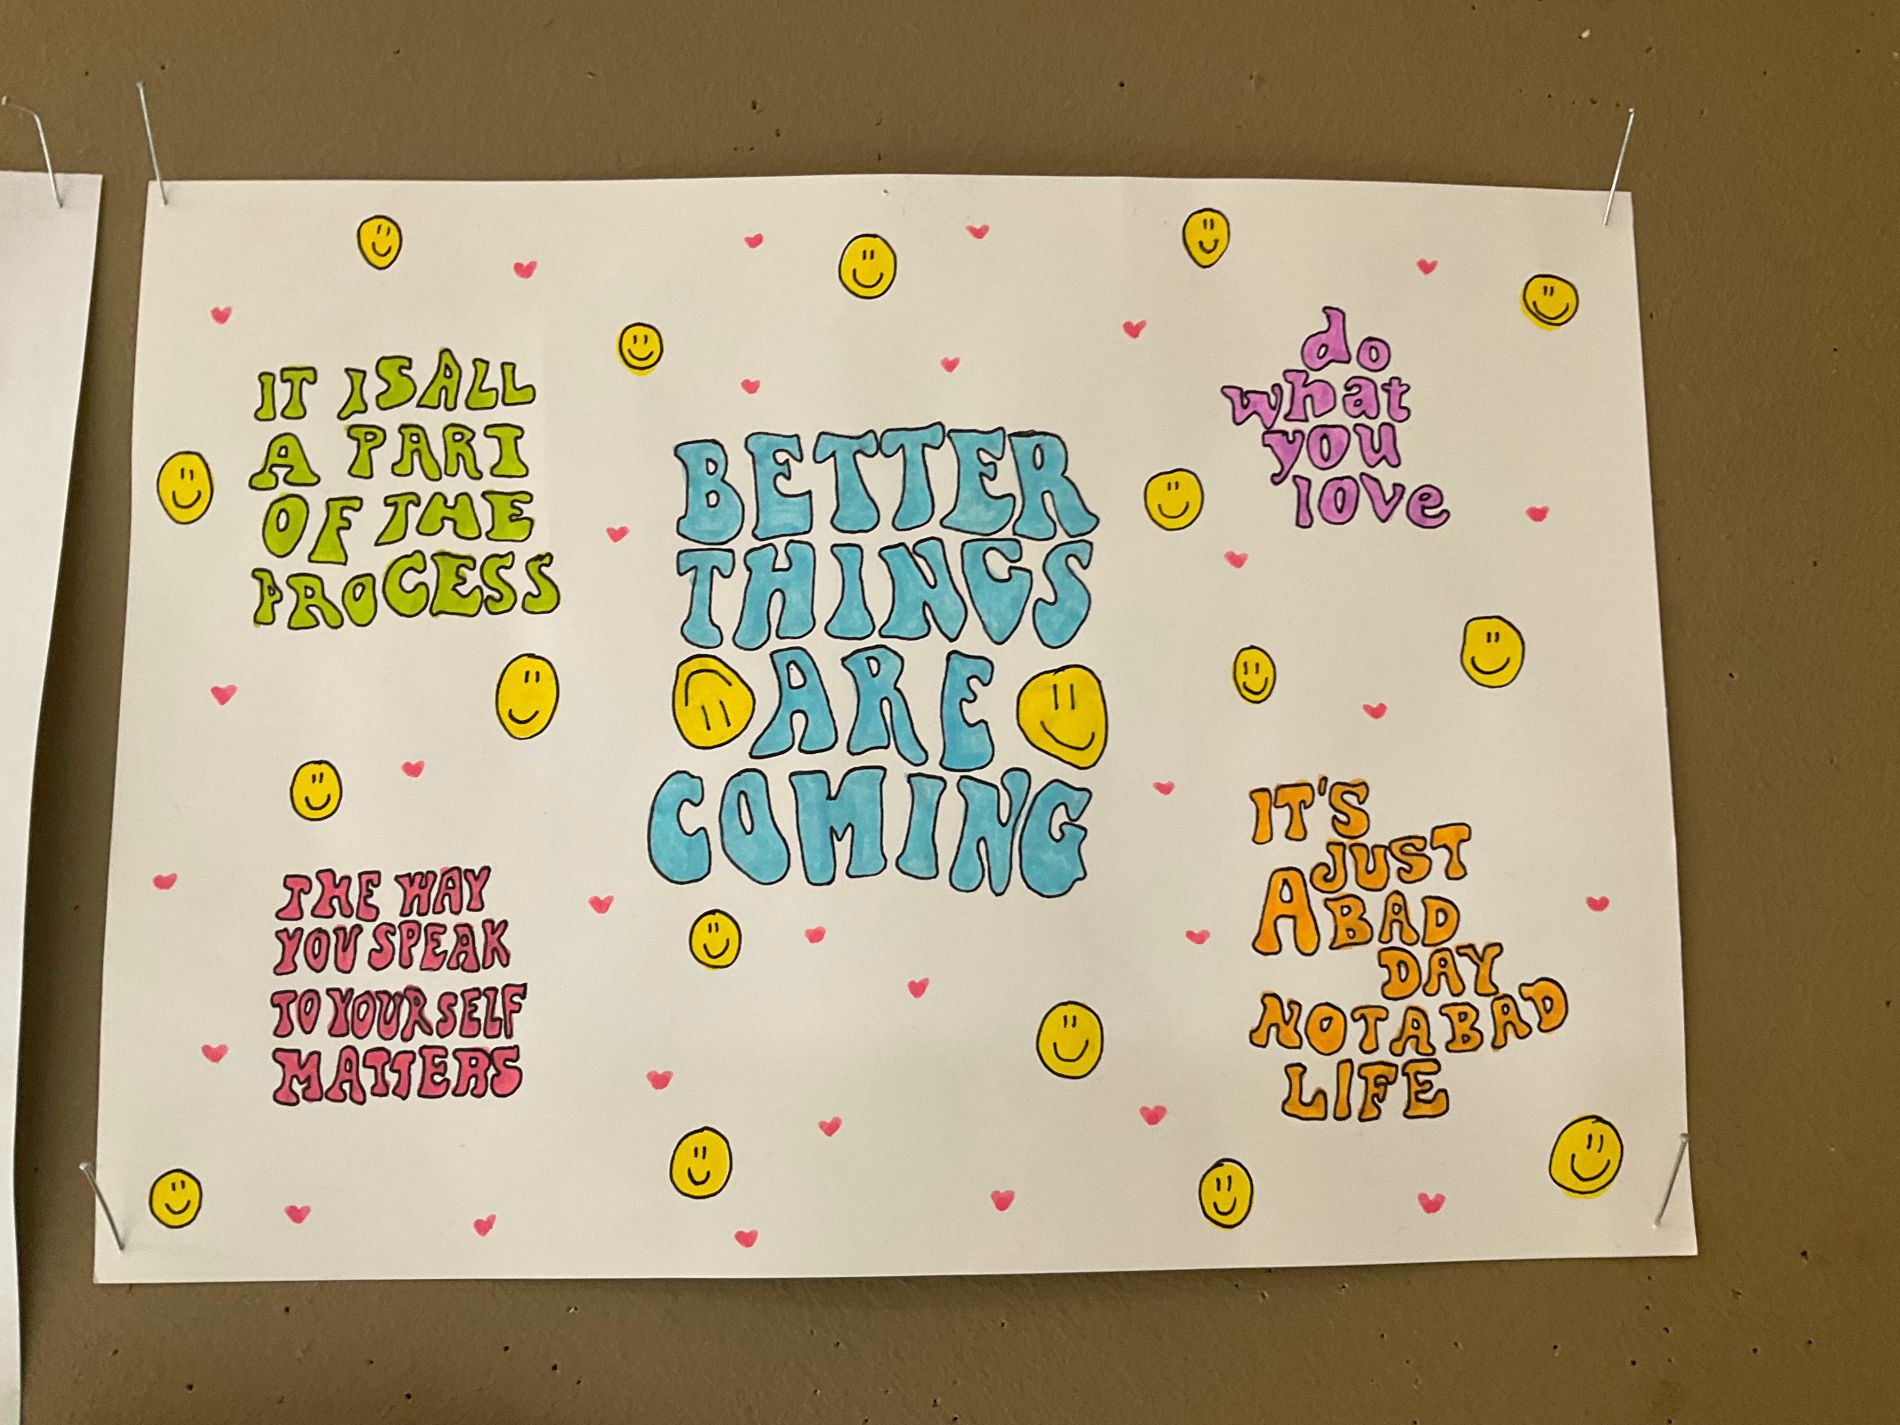 IT IS ALL
A PART
OF THE
PROCESS
BETTER
THINGS
ARE
COMING
do
what
you
love
THE WAY
YOU SPEAK
TO YOURSELF
MATTERS
IT'S
JUST
A BAD
DAY
NOT A BAD
LIFE